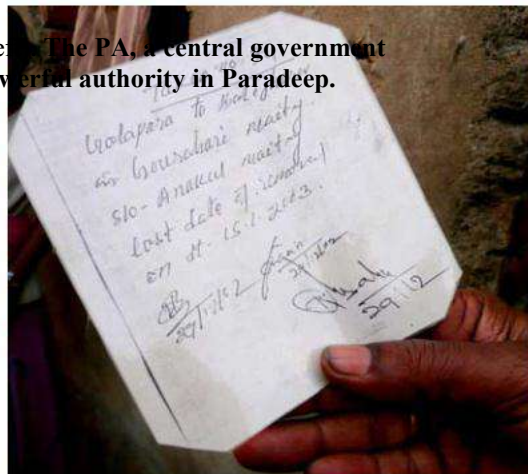 The PA, a central government
authority in Paradeep.
to
Gourahari maity
S/o- Anakul maity
Last date of removal
on dt- 15.1.2003.
29/12/02
29/12/02
29.12